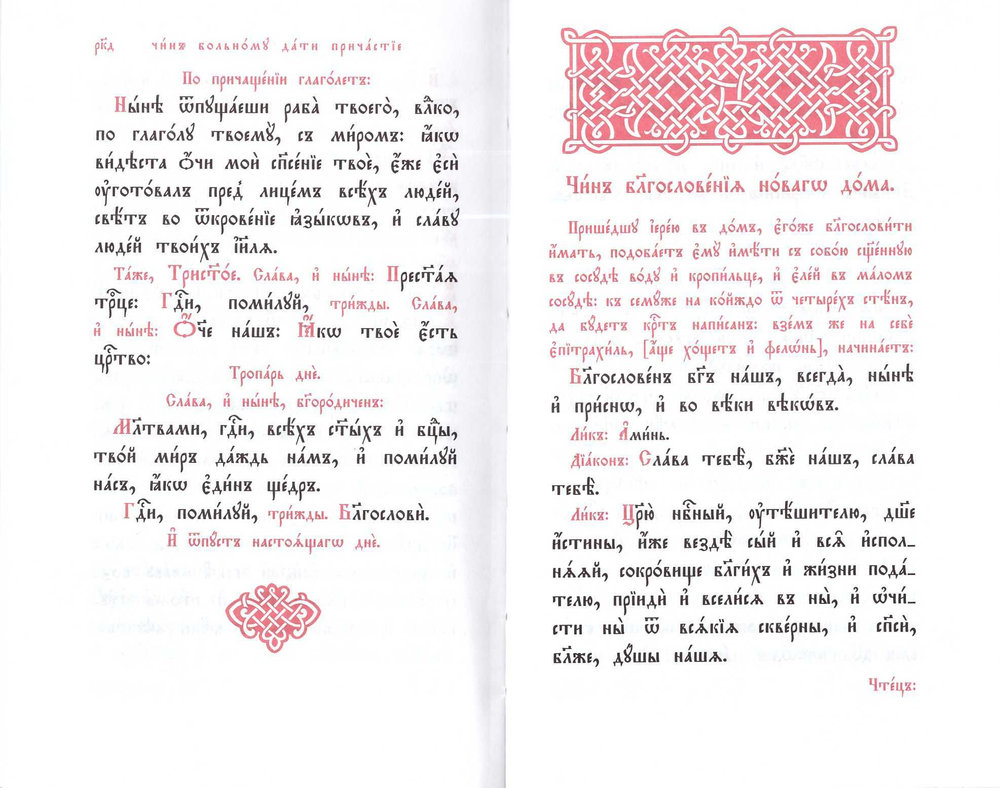 рк҃д чи́нъ больно́му да́ти прича́стїе
По причаще́нїи глаго́летъ:
Ны́нѣ ѿпꙋща́еши раба̀ твоего̀, влⷣко,
по глаго́лꙋ твоемꙋ̀, съ ми́ромъ: ꙗ҆́кѡ
ви́дѣста ѻ҆́чи моѝ сп҃се́нїе твоѐ, є҆́же є҆сѝ
ᲂу҆гото́валъ пред̾ лице́мъ всѣ́хъ люде́й,
свѣ́тъ во ѿкрове́нїе ꙗ҆зы́кѡвъ, и҆ сла́вꙋ
люде́й твои́хъ і҆и҃лѧ.
Та́же, Трист҃о́е. Сла́ва, и҆ ны́нѣ: Прест҃а́ѧ
трⷪ҇це: Гдⷭ҇и, поми́лꙋй, три́жды. Сла́ва,
и҆ ны́нѣ: Ѻ҆́ч҃е на́шъ: Ꙗ҆́кѡ твоѐ є҆́сть
црⷭ҇тво:
Тропа́рь днѐ.
Сла́ва, и҆ ны́нѣ, бг҃оро́диченъ:
Мл҃твами, гдⷭ҇и, всѣ́хъ ст҃ы́хъ и҆ бцⷣы,
тво́й ми́ръ да́ждь на́мъ, и҆ поми́лꙋй
на́съ, ꙗ҆́кѡ є҆ди́нъ ще́дръ.
Гдⷭ҇и, поми́лꙋй, три́жды. Бл҃гословѝ.
И҆ ѿпꙋ́стъ настоѧ́щагѡ днѐ.
Чи́нъ бл҃гослове́нїѧ но́вагѡ до́ма.
Прише́дшꙋ і҆ере́ю въ до́мъ, є҆го́же бл҃гослови́ти
и҆́мать, подоба́етъ є҆мꙋ̀ и҆мѣ́ти съ собо́ю сщ҃е́ннꙋю
въ сосꙋ́дѣ во́дꙋ и҆ кропи́льце, и҆ є҆ле́й въ ма́ломъ
сосꙋ́дѣ: къ семꙋже на ко́йждо ѿ четыре́хъ стѣ́нъ,
да бꙋ́детъ крⷭ҇тъ напи́санъ: взе́мъ же на себѐ
є҆пїтрахи́ль, [а҆́ще хо́щетъ и҆ фело́нь], начина́етъ:
Бл҃гослове́нъ бг҃ъ на́шъ, всегда̀, ны́нѣ
и҆ при́снѡ, и҆ во вѣ́ки вѣкѡ́въ.
Ли́къ: А҆ми́нь.
Дїа́конъ: Сла́ва тебѣ̀, бж҃е на́шъ, сла́ва
тебѣ̀.
Ли́къ: Цр҃ю̀ нбⷭ҇ный, ᲂу҆тѣ́шителю, дш҃е
и҆́стины, и҆́же вездѣ̀ сы́й и҆ всѧ̑ и҆спол_
нѧ́ѧй, сокро́вище бл҃ги́хъ и҆ жи́зни пода́_
телю, прїидѝ и҆ всели́сѧ въ ны̀, и҆ ѡ҆чи́_
сти ны̀ ѿ всѧ́кїѧ скве́рны, и҆ сп҃сѝ,
бл҃же, дꙋ́шы на́шѧ.
Чте́цъ: